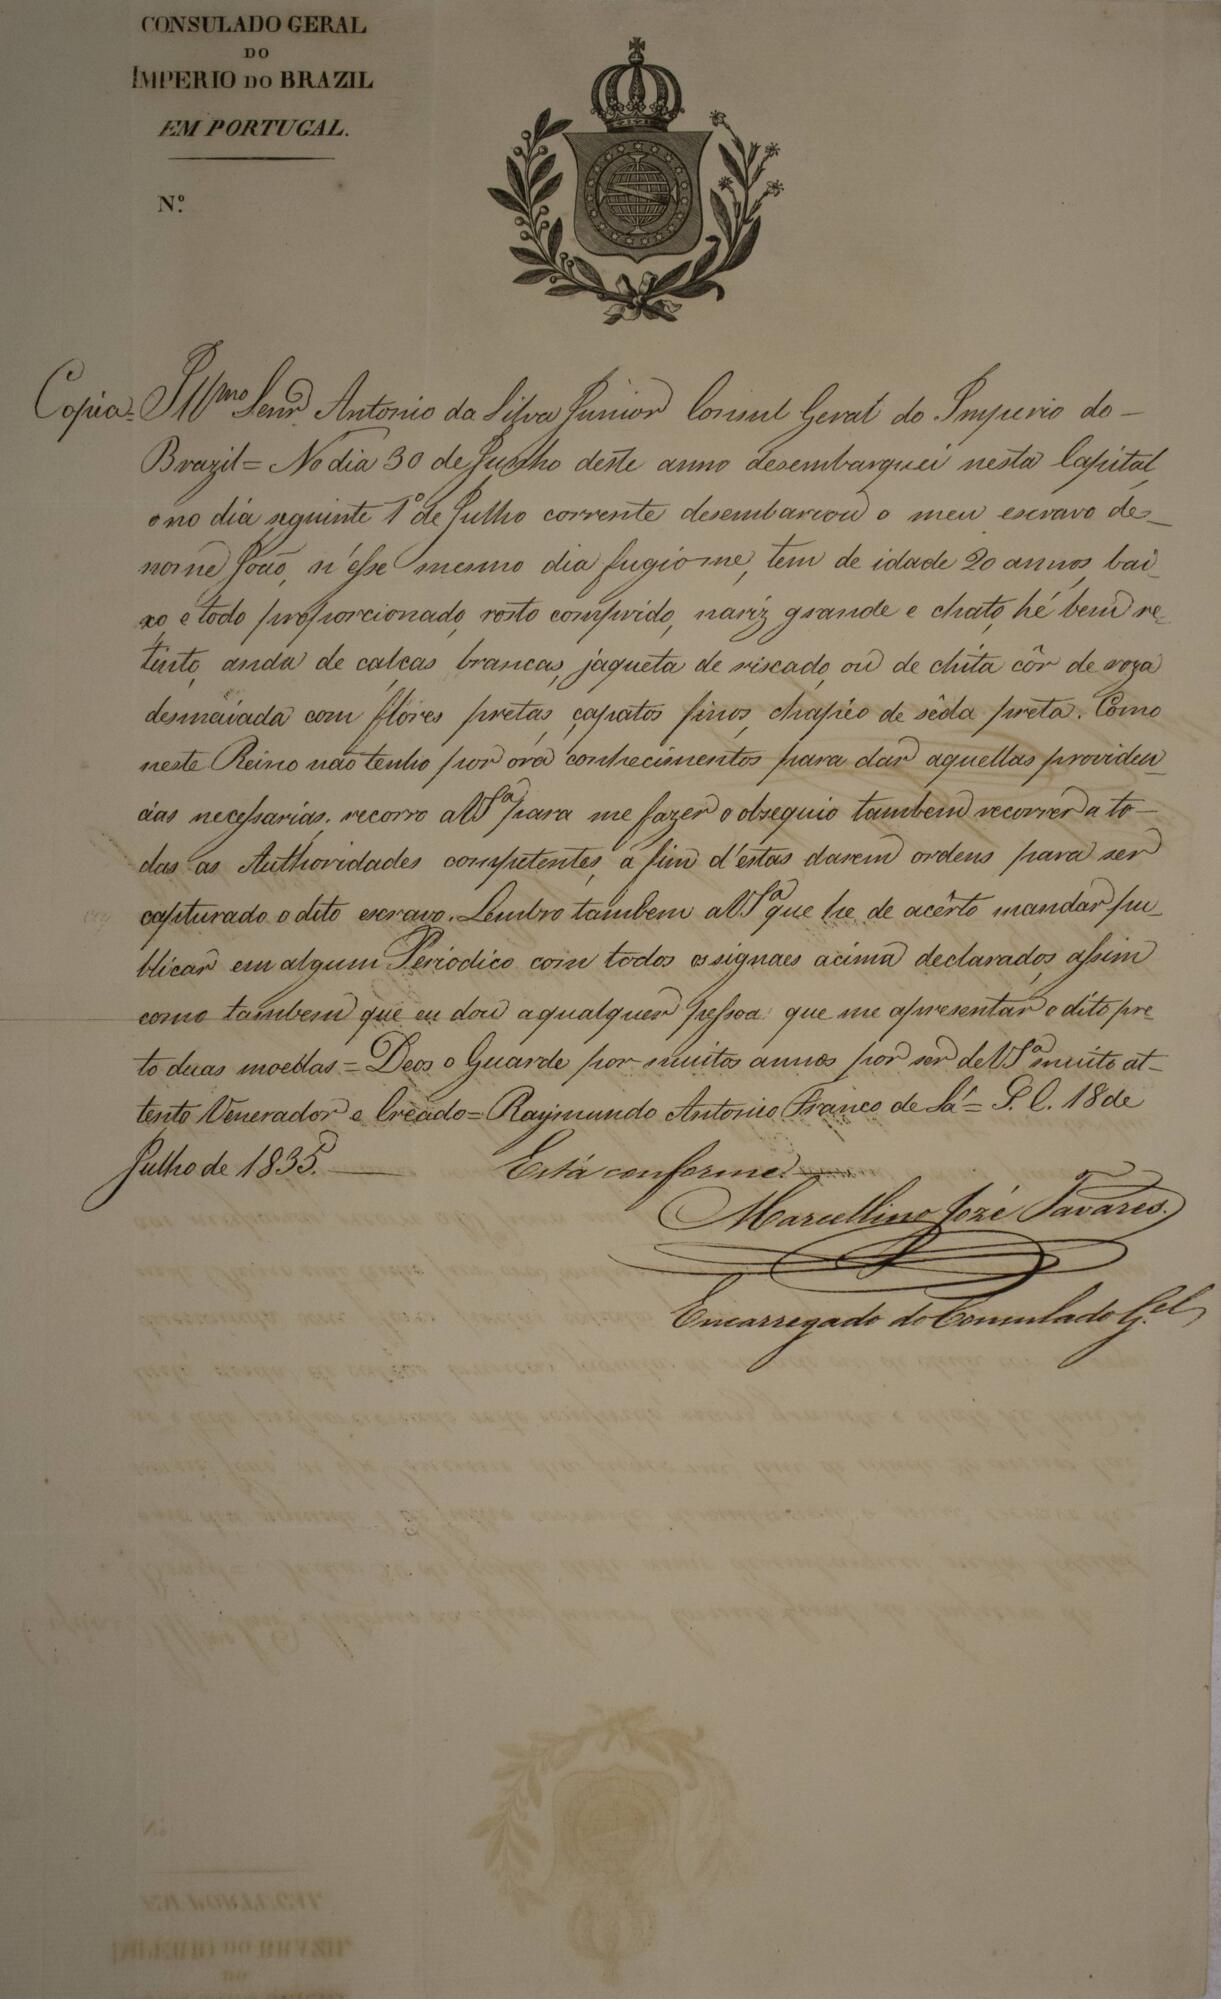 CONSULADO GERAL
DO
IMPERIO DO BRAZIL
EM PORTUGAL.
N.º
Copia = Illmo Senr Antonio da Silva Junior Consul Geral do Imperio do
Brazil = No dia 30 de Junho deste anno desembarquei nesta Capital,
e no dia seguinte 1º de Julho corrente desembarcou o meu escravo de
nome João, n'esse mesmo dia fugio me, tem de idade 20 annos, bai-
xo, e todo proporcionado, rosto comprido, nariz grande e chato, hé bem re-
tinto, anda de calças brancas, jaqueta de riscado, ou de chita côr de roza
desmaiada com flóres pretas, çapatos finos, chapéo de sêda preta. Como
neste Reino não tenho por ora conhecimentos para dar aquellas providen-
cias necessarias, recorro a VSª para me fazer o obsequio tambem recorrer a to-
das as Authoridades competentes, a fim d'estas darem ordens para ser
capturado o dito escravo. Lembro tambem a VSª que he de acêrto mandar pu-
blicar em algum Periódico com todos os signaes acima declarados, assim
como tambem que eu dou a qualquer pessoa que me apresentar o dito pre-
to duas moedas = Deos o Guarde por muitos annos por ser de VSª muito at-
tento Venerador e Creado = Raymundo Antonio Franco de Sá = S. C. 18 de
Julho de 1835.
Está conforme.
Marcellino Jozé Tavares.
Encarregado do Consulado G.el